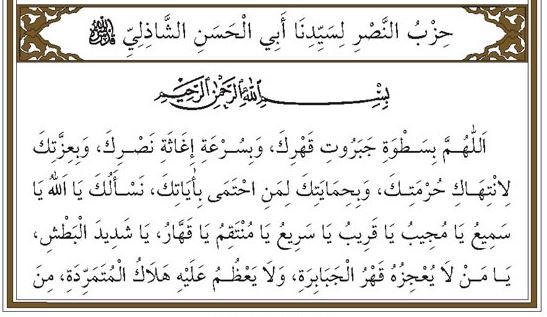 حِزْبُ النَّصْرِ لِسَيِّدِنَا أَبِي الْحَسَنِ الشَّاذِلِيِّ
بِسْمِ اللهِ الرَّحْمٰنِ الرَّحِيمِ
اَللّٰهُمَّ بِسَطْوَةِ جَبَرُوتِ قَهْرِكَ، وَبِسُرْعَةِ إِغَاثَةِ نَصْرِكَ، وَبِغِيْرَتِكَ
لِانْتِهَاكِ حُرْمَتِكَ، وَبِحِمَايَتِكَ لِمَنِ احْتَمَى بِأٰيَاتِكَ، نَسْأَلُكَ يَا اَللهُ يَا
سَمِيعُ يَا مُجِيبُ يَا قَرِيبُ يَا سَرِيعُ يَا مُنْتَقِمُ يَا قَهَّارُ، يَا شَدِيدَ الْبَطْشِ،
يَا مَنْ لَا يُعْجِزُهُ قَهْرُ الْجَبَابِرَةِ، وَلَا يَعْظُمُ عَلَيْهِ هَلَاكُ الْمُتَمَرِّدَةِ، مِنَ